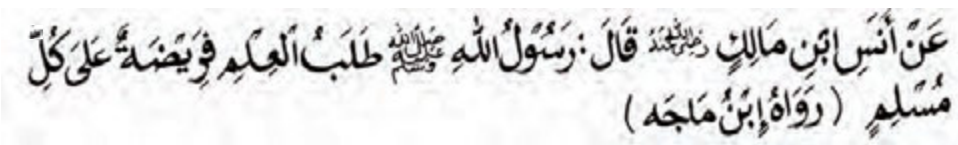 عَنْ أَنَسِ ابْنِ مَالِكٍ رضي الله عنه قَالَ: رَسُوْلُ اللهِ ﷺ طَلَبُ الْعِلْمِ فَرِيْضَةٌ عَلَى كُلِّ
مُسْلِمٍ (رَوَاهُ إِبْنُ مَاجَه)